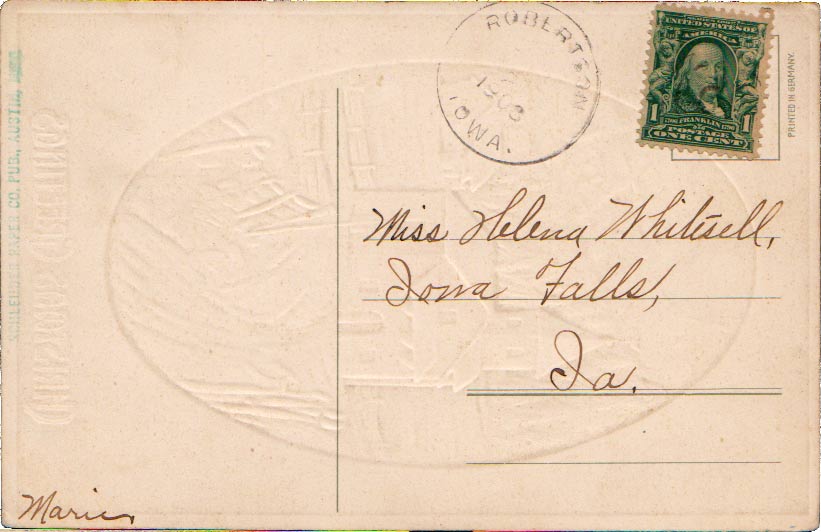 ROBERTSON
1908
IOWA.
SERIES 1902
UNITED STATES OF
AMERICA
1 1706 FRANKLIN 1790 1
POSTAGE
ONE CENT
PRINTED IN GERMANY.
PAPER CO. PUB., AUSTIN,
CHRISTMAS GREETINGS
Miss Helena Whitesell,
Iowa Falls,
Ia.
Marie